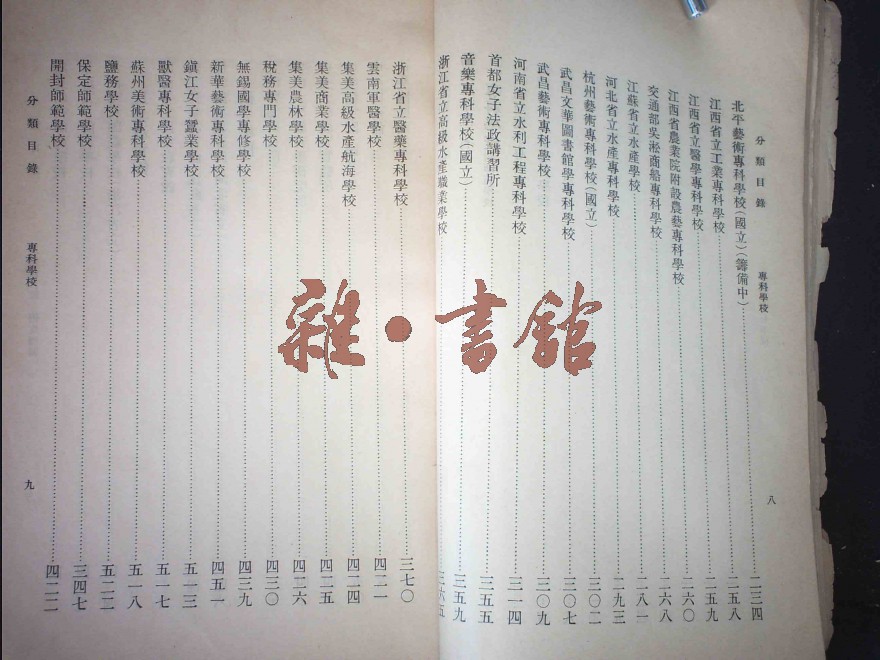 分類目錄　專科學校　八
北平藝術專科學校(國立)(籌備中)……二三四
江西省立工業專科學校……二五八
江西省立醫學專科學校……二五九
江西省農業院附設農藝專科學校……二六〇
交通部吳淞商船專科學校……二六八
江蘇省立水產學校……二八一
河北省立水產專科學校……二九三
杭州藝術專科學校(國立)……三〇二
武昌文華圖書館學專科學校……三〇七
武昌藝術專科學校……三〇九
河南省立水利工程專科學校……三一四
首都女子法政講習所……三五五
音樂專科學校(國立)……三五九
浙江省立高級水產職業學校……三六五
浙江省立醫藥專科學校……三七〇
雲南軍醫學校……四二一
集美高級水產航海學校……四二四
集美商業學校……四二五
集美農林學校……四二六
稅務專門學校……四三〇
無錫國學專修學校……四三九
新華藝術專科學校……四五一
鎭江女子蠶業學校……五一三
獸醫專科學校……五一七
蘇州美術專科學校……五一八
鹽務學校……五二二
保定師範學校……三四七
開封師範學校……四二二
分類目錄　專科學校　九
雜·書館